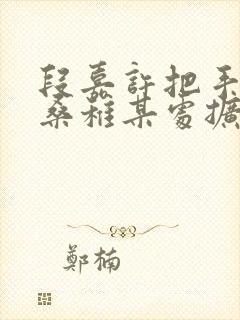 段嘉許把手
桑稚某處擴
鄭楠